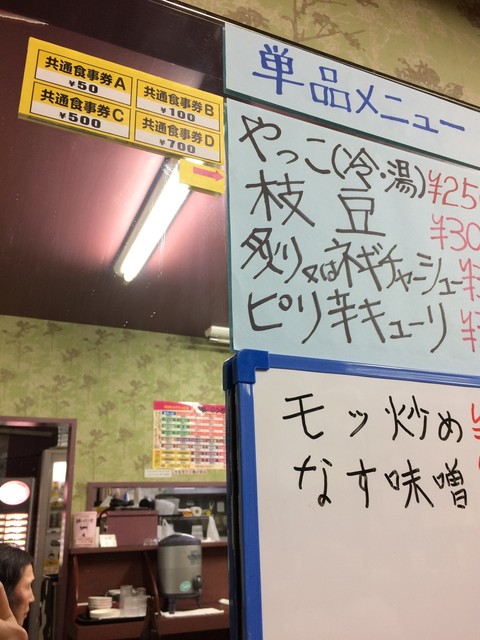 共通食事券A
¥50
共通食事券B
¥100
共通食事券C
¥500
共通食事券D
¥700
単品メニュー
やっこ(冷・湯)¥25
枝豆 ¥30
炙り又はネギチャーシュー¥
ピリ辛キューリ ¥
モツ炒め
なす味噌